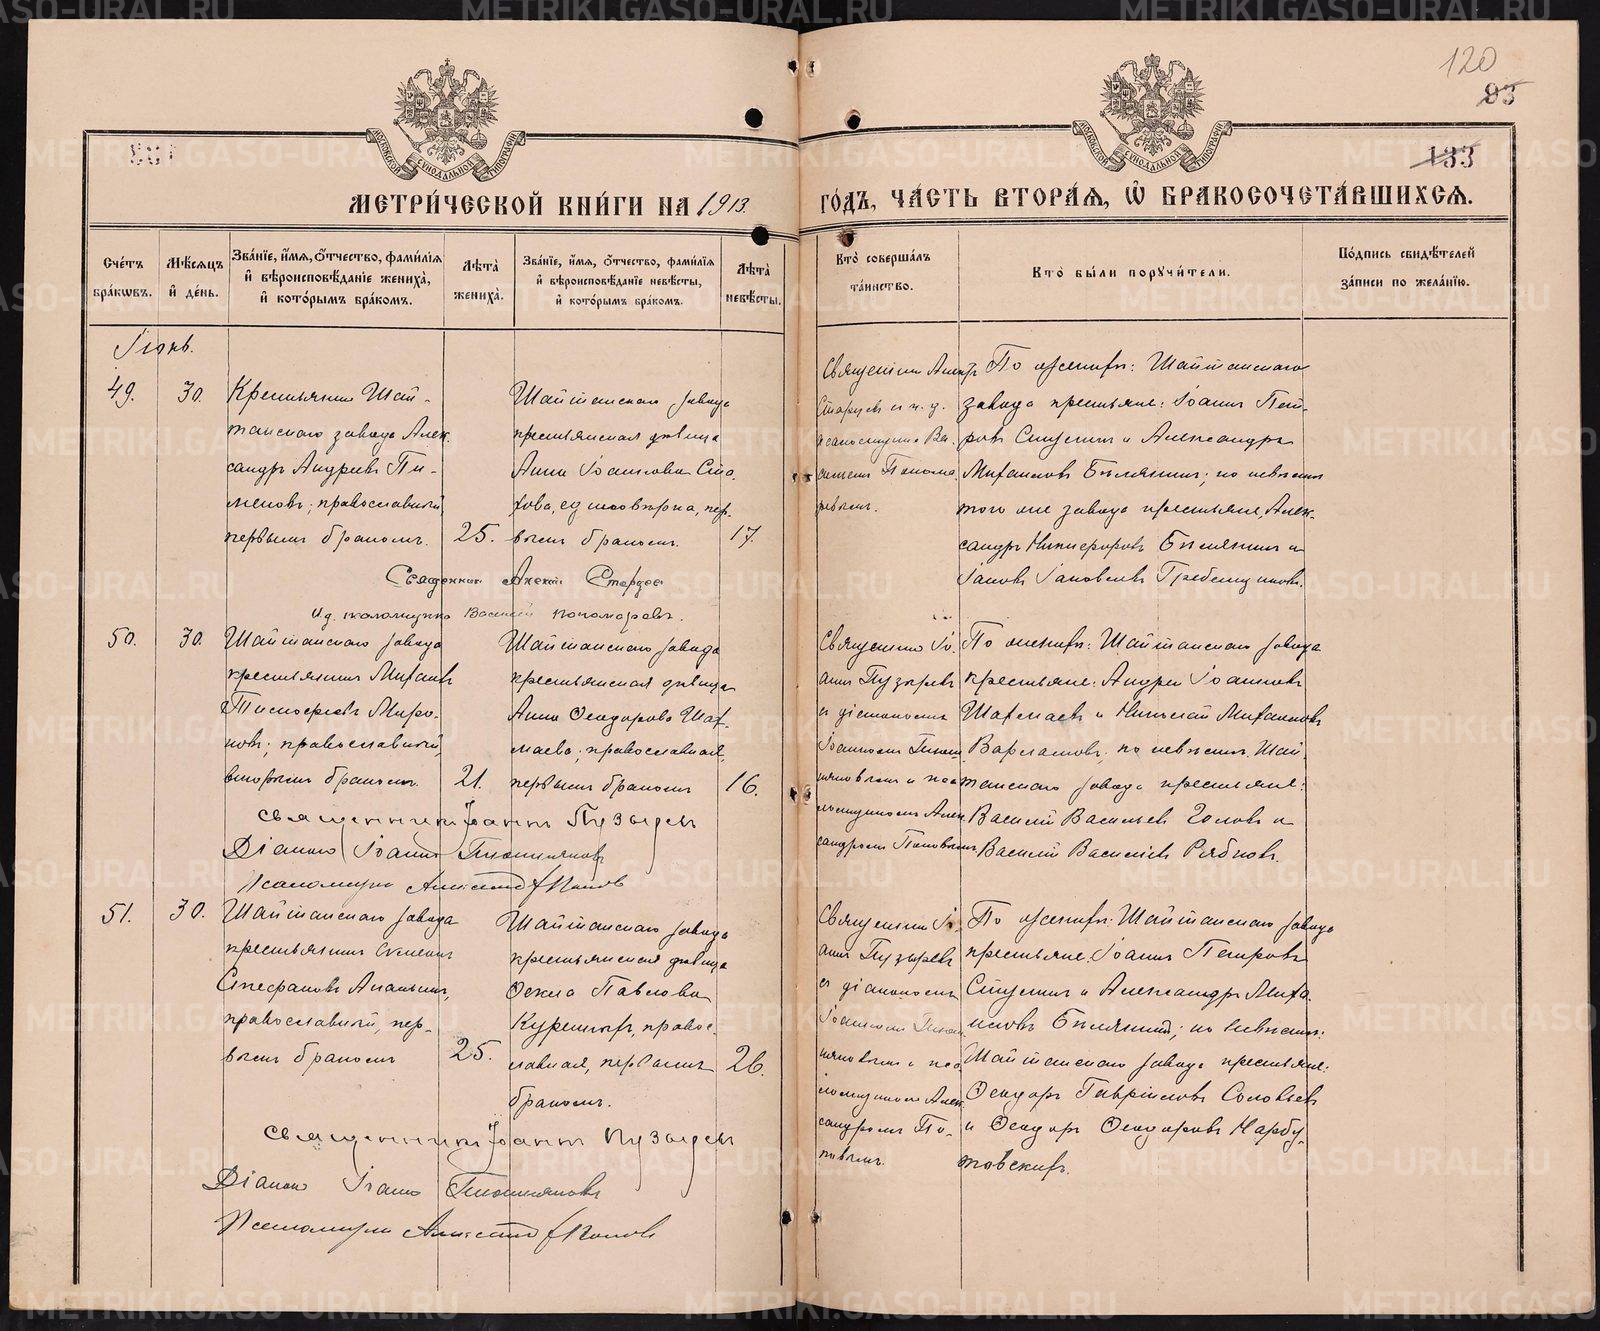 120
93
133
МЕТРИ́ЧЕСКОЙ КНИ́ГИ НА 1913.
ГО́ДЪ, ЧА́СТЬ ВТОРА́Я, Ѡ҆ БРАКОСОЧЕТА́ВШИХСЯ.
Сче́тъ бра́кѡвъ.
Мѣ́сяцъ и҆ де́нь.
Зва́нїе, и҆́мя, ѻ҆́тчество, фами́лїя и҆ вѣроисповѣ́данїе жениха̀, и҆ кото́рымъ бра́комъ.
Лѣ́та̀ жениха̀.
Зва́нїе, и҆́мя, ѻ҆́тчество, фами́лїя и҆ вѣроисповѣ́данїе невѣ́сты, и҆ кото́рымъ бра́комъ.
Лѣ́та̀ невѣ́сты.
Кто̀ соверша́лъ та́инство.
Кто̀ бы́ли порꙋчи́тели.
По́дпись свидѣ́телей за́писи по жела́нїю.
Іюнь.
49.
30.
Крестьянинъ Шай-
танскаго завода Алек-
сандръ Андреевъ Пи-
меновъ; православный,
первымъ бракомъ.
25.
Шайтанскаго завода
крестьянская дѣвица
Анна Іоаннова
единовѣрка, пер-
вымъ бракомъ.
17.
Священникъ
съ и. д.
псаломщика Ва-
силіемъ Понома-
ревымъ.
По женихѣ: Шайтанскаго
завода крестьяне: Іоаннъ Пет-
ровъ и Александръ
Михаиловъ по невѣстѣ
того же завода крестьяне, Алек-
сандръ Никифоровъ и
Іаковъ Іаковлевъ Гребенщиковъ.
Священникъ Алексій
И.д. псаломщика Василій Пономаревъ.
50.
30.
Шайтанскаго завода
крестьянинъ Михаилъ
Тимофеевъ Миро-
новъ; православный,
вторымъ бракомъ.
21.
Шайтанскаго завода
крестьянская дѣвица
Анна Ѳеодорова Шах-
маева; православная,
первымъ бракомъ
16.
Священникъ Іо-
аннъ Пузыревъ
съ діакономъ
Іоанномъ
и пса-
ломщикомъ Алек-
сандромъ Поповымъ.
По женихѣ: Шайтанскаго завода
крестьяне: Андрей Іоанновъ
Шахмаевъ и Николай Михаиловъ
Варламовъ, по невѣстѣ Шай-
танскаго завода крестьяне:
Василій Васильевъ и
Василій Васильевъ Рябковъ.
Священникъ Іоаннъ Пузыревъ
Діаконъ Іоаннъ
Псаломщикъ Поповъ
51.
30.
Шайтанскаго завода
крестьянинъ
Стефановъ Ананьинъ,
православный, пер-
вымъ бракомъ
25.
Шайтанскаго завода
крестьянская дѣвица
Ѳекла Павлова
правос-
лавная, первымъ
бракомъ.
26.
Священникъ Іо-
аннъ Пузыревъ
съ діакономъ
Іоанномъ
и пса-
ломщикомъ Алек-
сандромъ По-
повымъ.
По женихѣ: Шайтанскаго завода
крестьяне: Іоаннъ Петровъ
и Александръ Миха-
иловъ по невѣстѣ:
Шайтанскаго завода крестьяне:
Ѳеодоръ Гавріиловъ Соловьевъ
и Ѳеодоръ Ѳеодоровъ Нарбу-
товскихъ.
Священникъ Іоаннъ Пузыревъ
Діаконъ Іоаннъ
Псаломщикъ Поповъ
METRIKI.GASO-URAL.RU